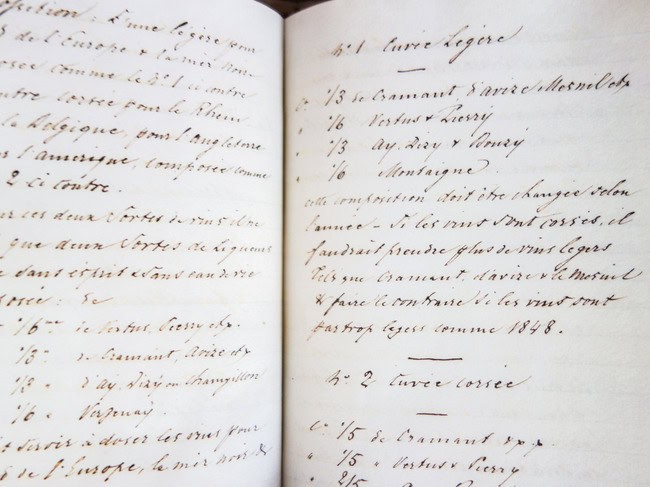 position : D'une légère pour
s de l'Europe & la mer Noi-
osée comme le No 1 ci contre
utre corsée pour le Rhein
la Belgique, pour l'angleterre
r l'amérique, composée comme
2 ci contre.
ur ces deux Sortes de vins il ne
que deux Sortes de Liqueurs
e sans esprit & sans eau de vie
posée : de
1/6 de Vertus, Pierry etc.
1/3 de Cramant, Avize etc
1/3 " d'Ay, Dizy ou Champillon
1/6 " Verzenay.
it servir à doser les vins pour
s de l'Europe, la mer noire &
No 1 Cuvée Légère
1/3 de Cramant d'avize Mesnil etc
" 1/6 Vertus & Pierry
" 1/3 Ay, Dizy & Bouzy
" 1/6 Montaigne.
cette composition doit être changée selon
l'année - Si les vins sont corsés, il
faudrait prendre plus de vins légers
tels que Cramant, d'avize & le Mesnil
& faire le contraire si les vins sont
par trop légers comme 1848.
No 2 Cuvée corsée
1/5 de Cramant
" 1/5 " Vertus & Pierry
" 2/5